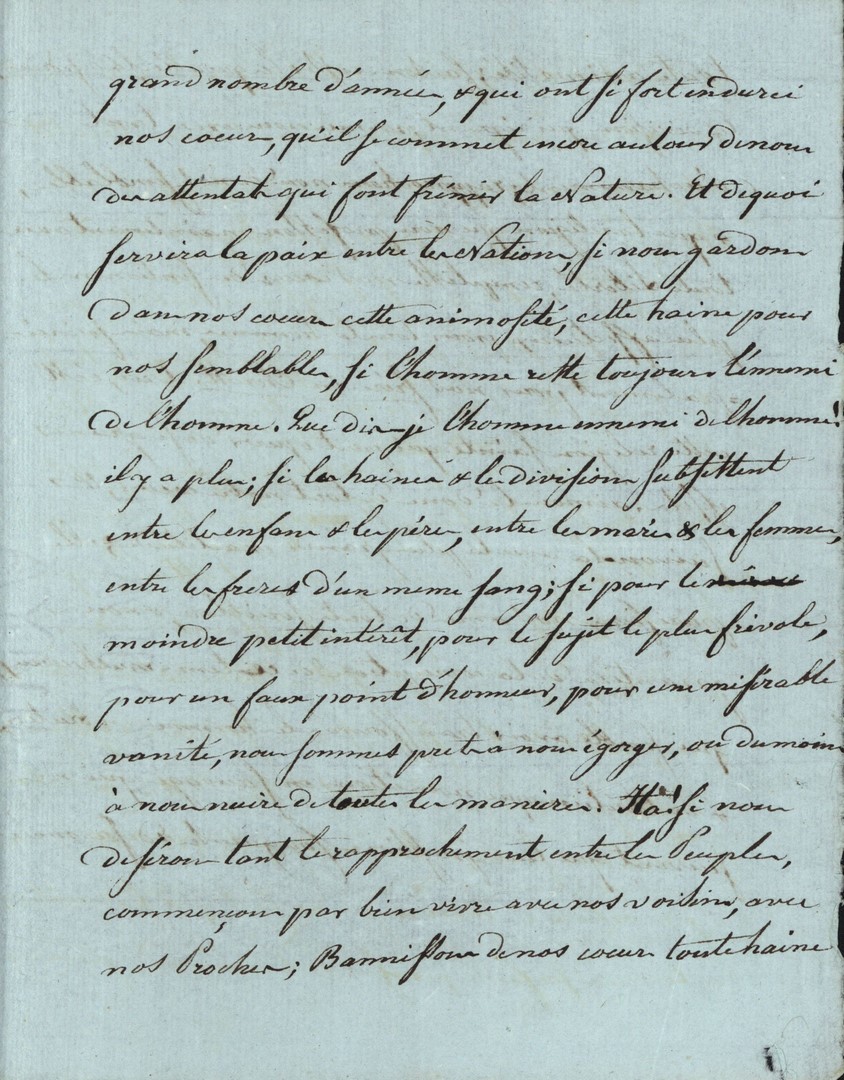 grand nombre d'années, & qui ont si fort endurci
nos coeurs, qu'il se commet encore autour de nous
des attentats qui font frémir la Nature. Et dequoi
servira la paix entre les Nations, si nous gardons
dans nos coeurs cette animosité, cette haine pour
nos semblables, si l'homme reste toujours l'énnemi
de l'homme. Que dis-je l'homme ennemi de l'homme!
il y a plus; si les haines & les divisions subsistent
entre les enfans & les péres, entre les maris & les femmes,
entre les freres d'un meme sang; si pour le
moindre petit intérêt, pour le sujet le plus frivole,
pour un faux point d'honneur, pour une misérable
vanité, nous sommes prets à nous égorger, ou du moins
à nous nuire de toutes les manieres. Ha! si nous
desirons tant le rapprochement entre les Peuples,
commençons par bien vivre avec nos voisins, avec
nos Proches; Bannissons de nos coeurs toute haine